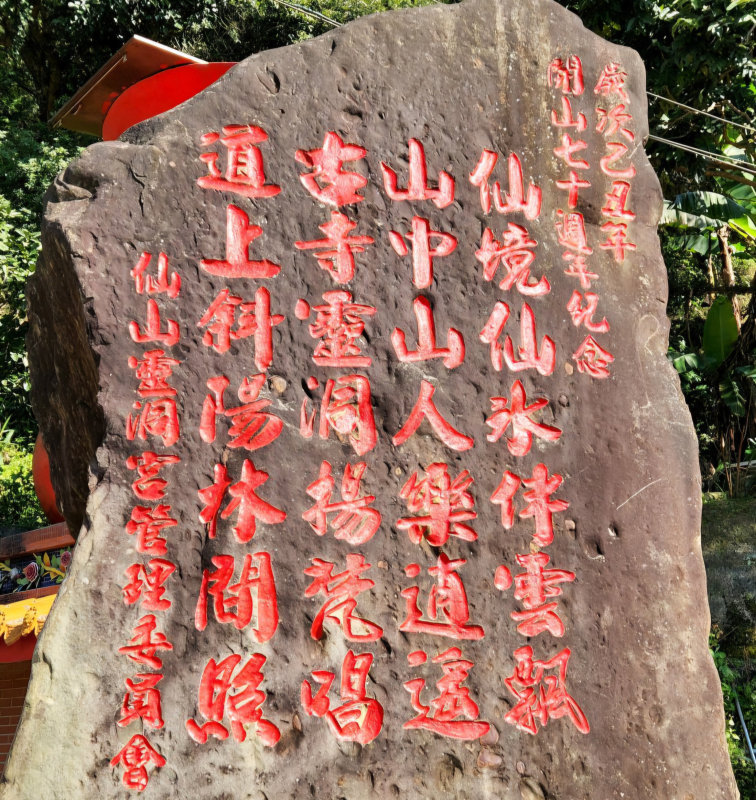 歲次乙丑年
開山七十週年紀念
仙境仙氷伴雲飄
山中山人樂逍遙
古寺靈洞揚梵唱
道上斜陽林間照
仙山靈洞宮管理委員會